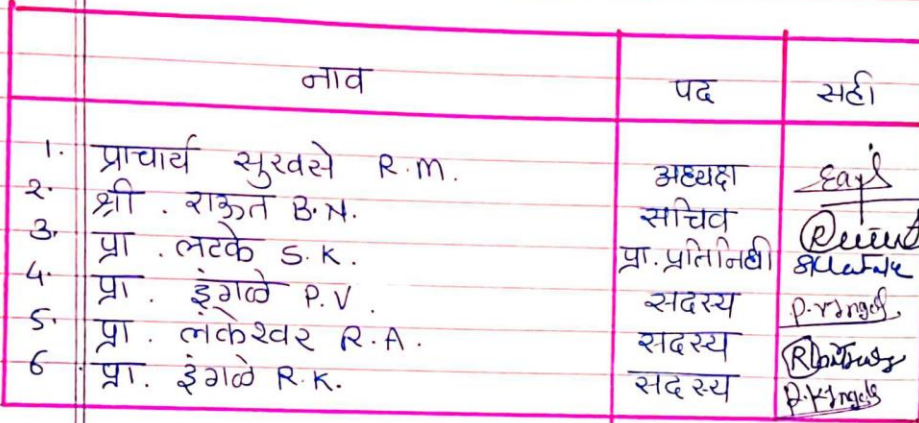 नाव पद सही
1. प्राचार्य सुरवसे R.M. अध्यक्ष
2. श्री. राऊत B.N. सचिव
3. प्रा. लटके S.K. प्रा. प्रतिनिधी
4. प्रा. इंगळे P.V. सदस्य P.V Ingale
5. प्रा. लंकेश्वर R.A. सदस्य
6 प्रा. इंगळे R.K. सदस्य R.K Ingale